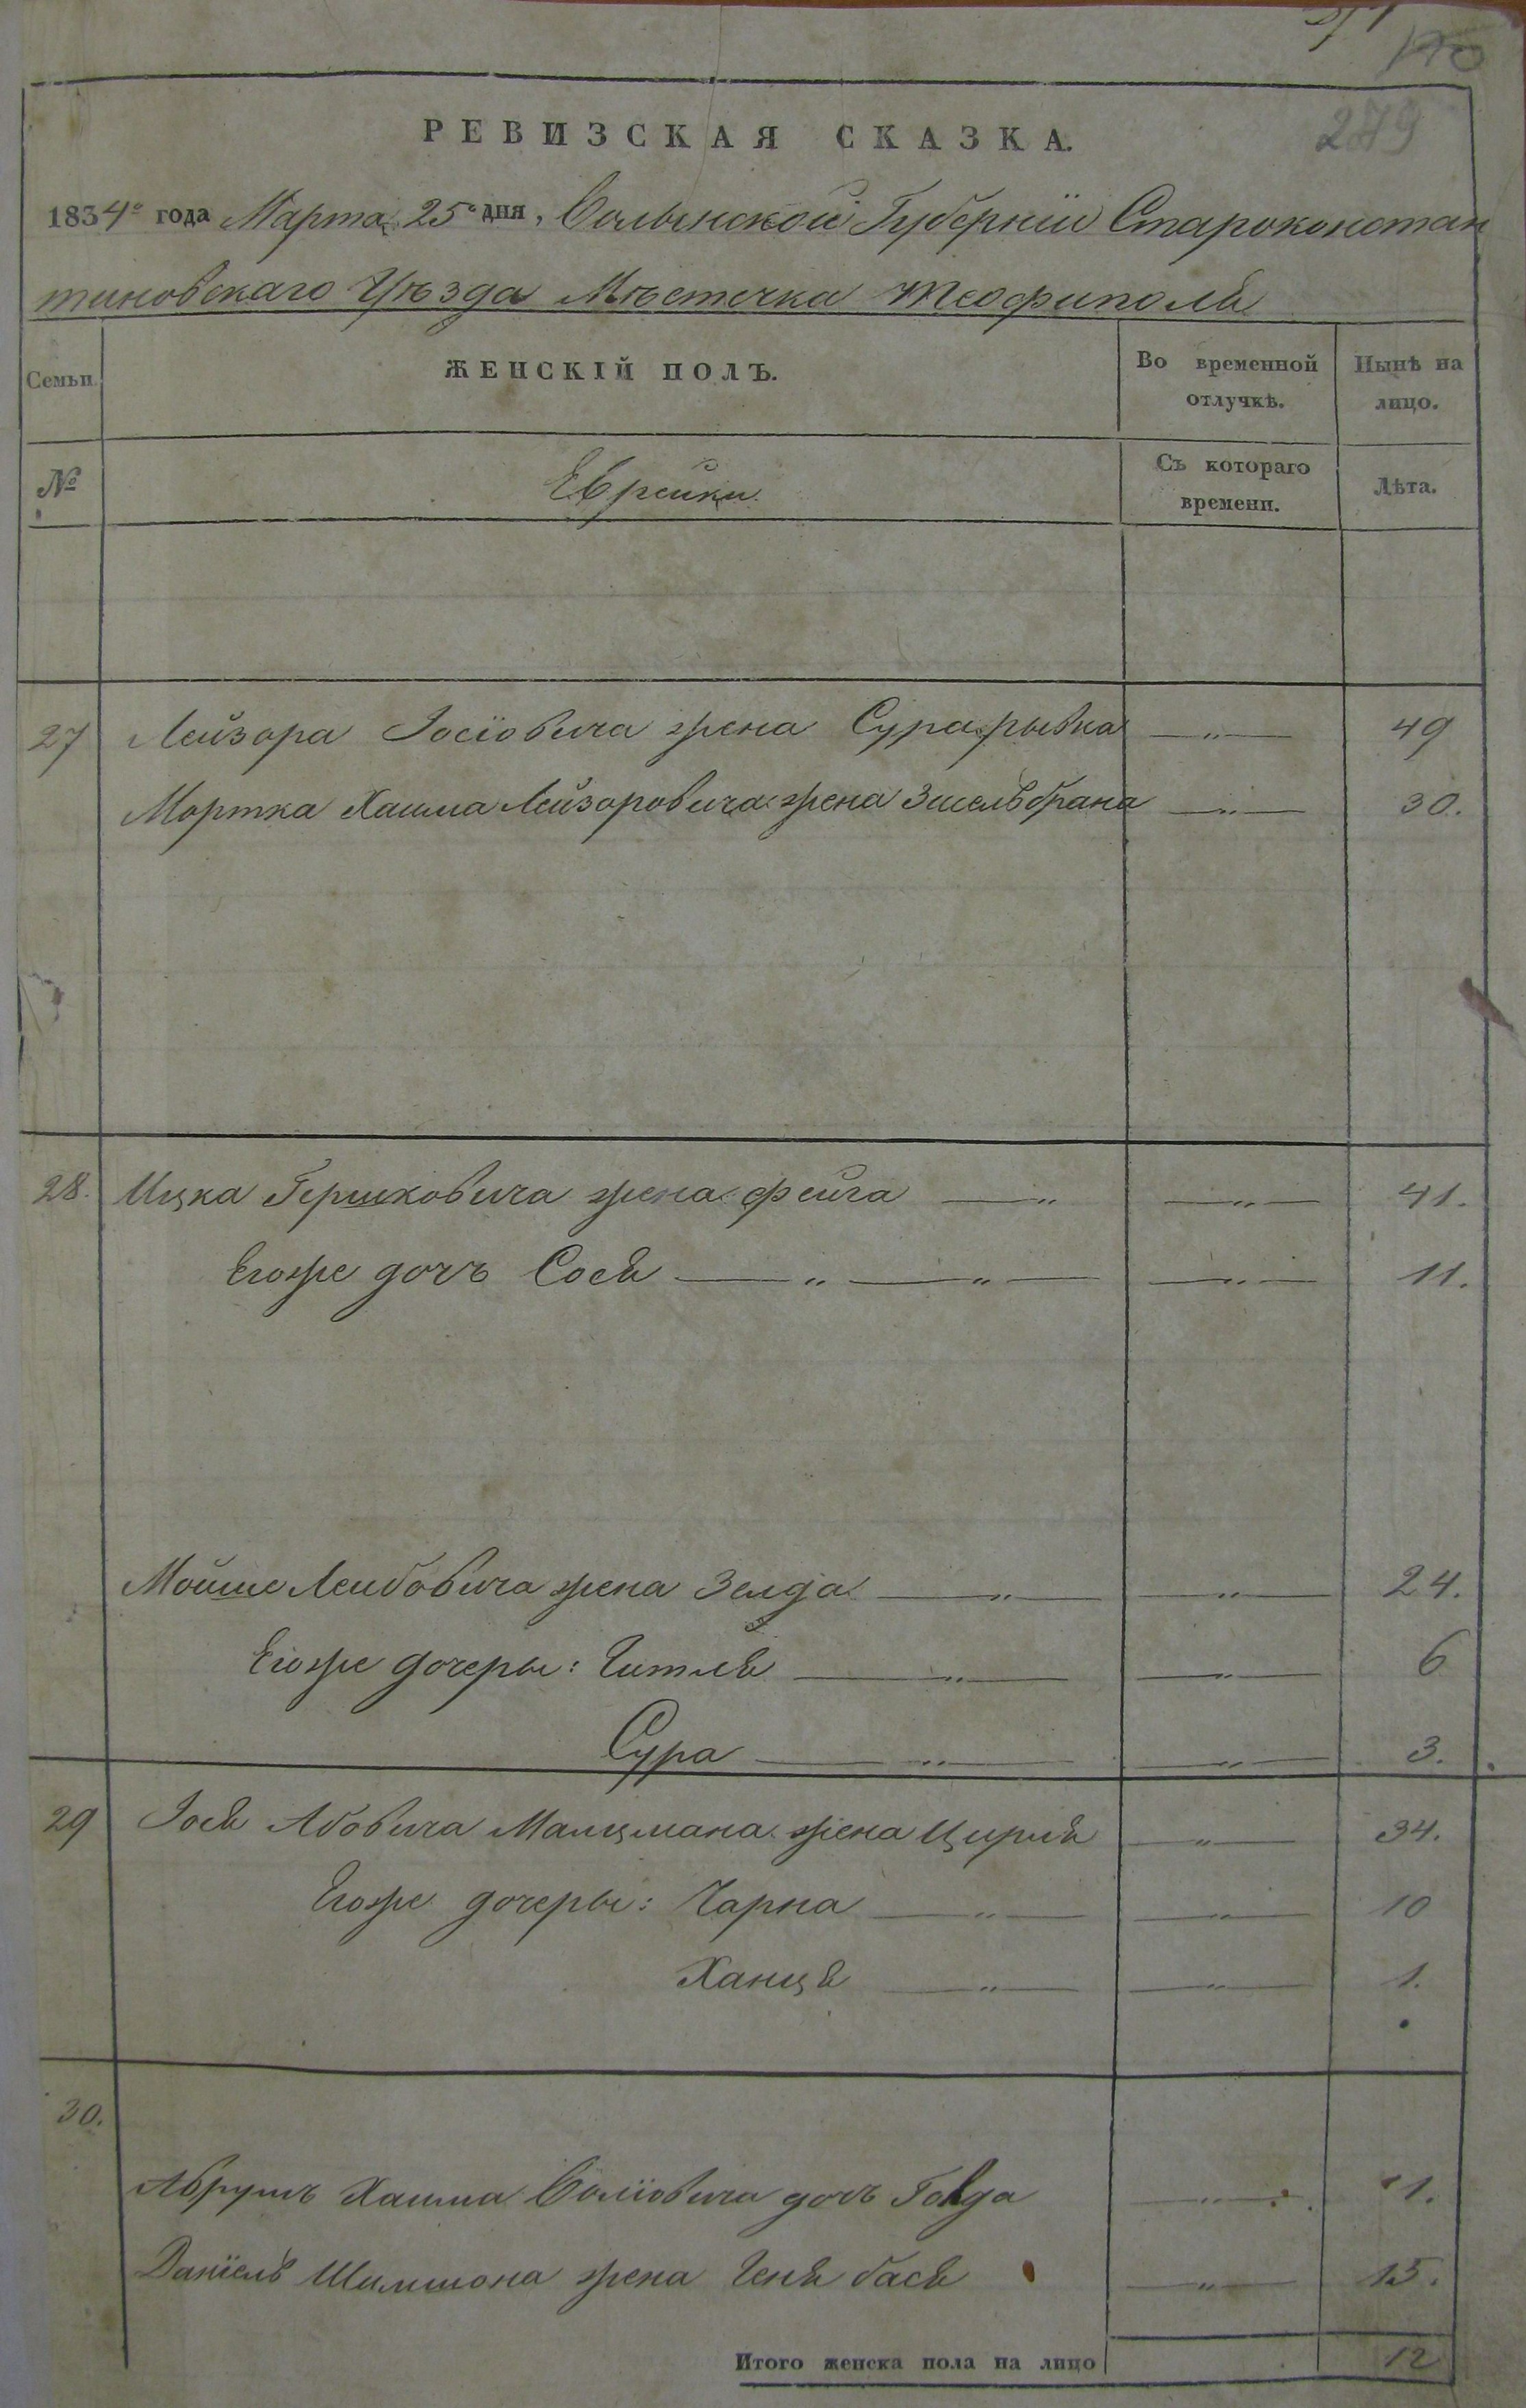 279
РЕВИЗСКАЯ СКАЗКА.
1834º года Марта 25º дня, Волынской Губерніи Староконстан
тиновскаго Уѣзда Мѣстечка Теофиполя
Семьи. ЖЕНСКІЙ ПОЛЪ. Во временной отлучкѣ. Нынѣ на лицо.
№ Еврейки. Съ котораго времени. Лѣта.
27 Лейзора Іосіовича жена Сура рывка —„— 49
Мортка Хаима Лейзоровича жена Зисельбрана —„— 30.
28. Ицка Гершковича жена фейга —„ —„— 41.
Егоже дочъ Сося —„—„— —„— 11.
Мойше Лейбовича жена Зелда —„— —„— 24.
Егоже дочеры: Гитля —„— —„— 6
Сура —„— —„— 3.
29 Іося Абовича Малцмана жена Цирля —„— 34.
Егоже дочеры: Чарна —„— —„— 10
Ханця —„— —„— 1.
30.
Аврумъ Хаима дочъ Голда —„— 11.
Даніель Шимшона жена Геня бася —„— 15.
Итого женска пола на лицо 12